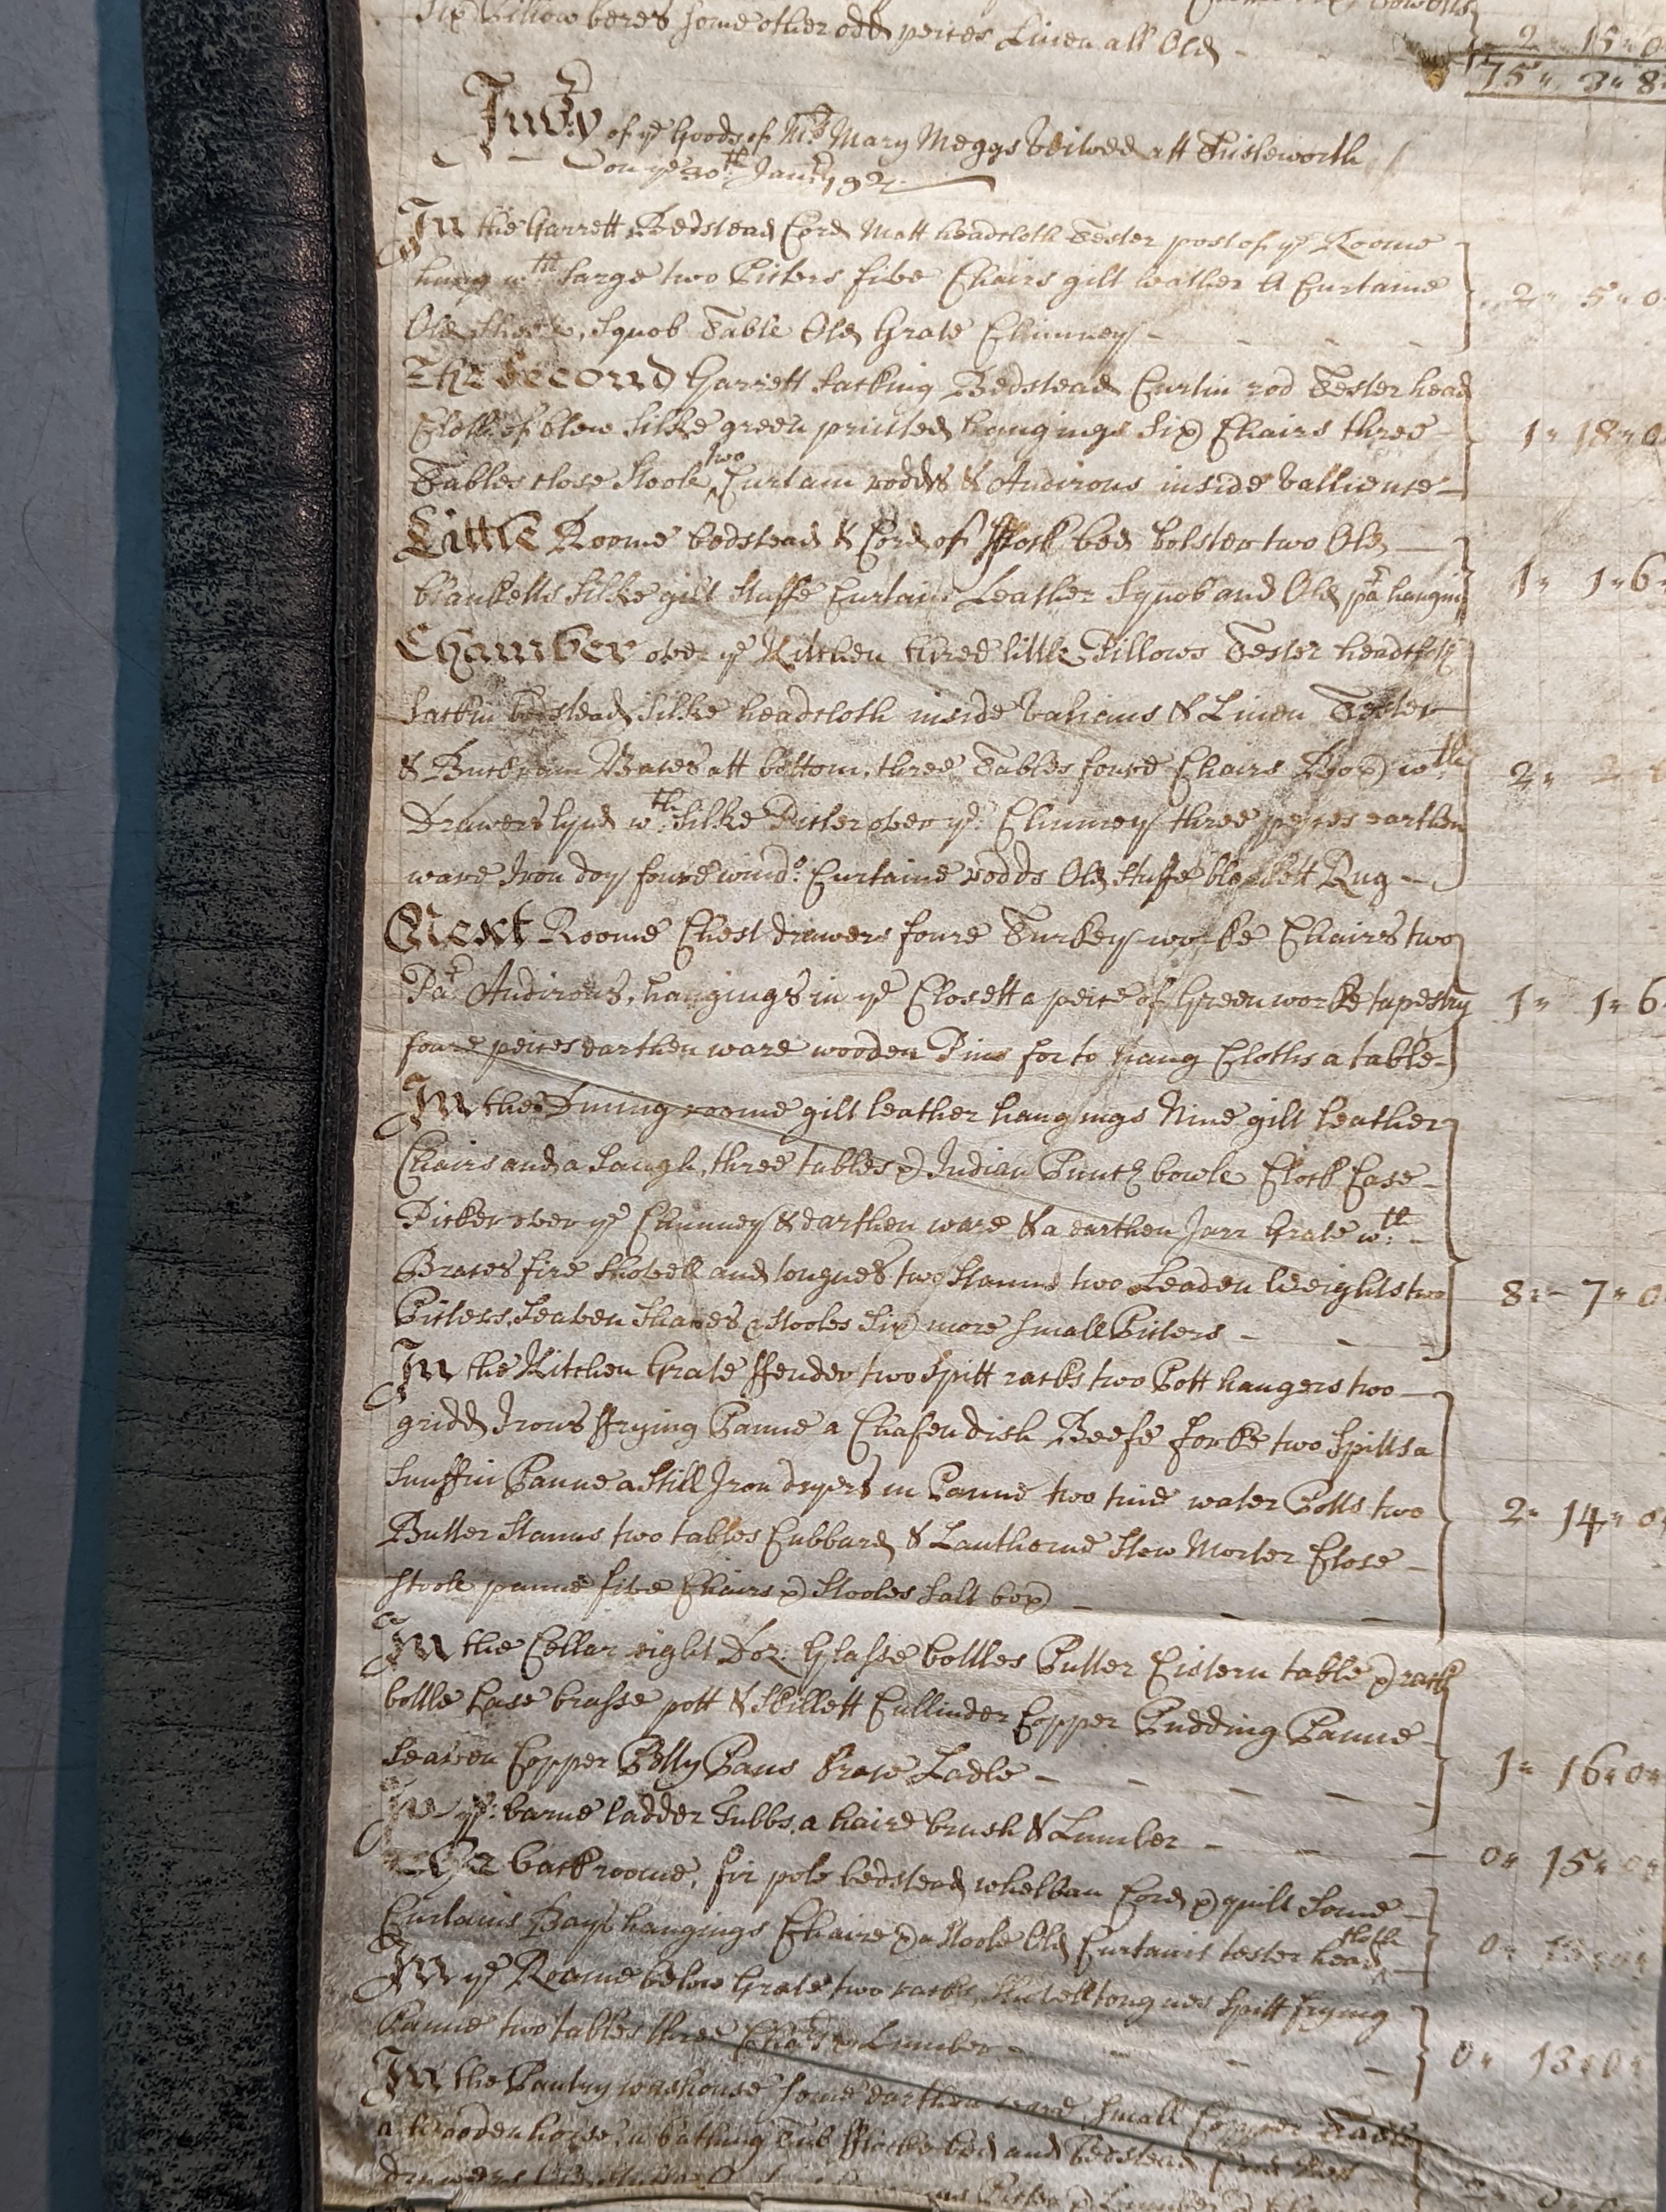 Six Pillowberes some other odd peices Linen all Old -
2 " 15 " 0
75 " 3 " 8
Inv:ry of ye Goods of Mrs Mary Meggs Veiwed att Thisleworth
on ye 30th Janry 92
In the Garrett Bedstead Cord Matt headcloth Tester post of ye Roome
hung wth Sarge two Picters five Chairs gilt leather A Curtaine
Old Squob Table Old Grate Chimney -
2 " 5 " 0
The Second Garrett Sacking Bedstead Curtin rod Tester head
Cloth of blew Silke green printed hangings Six Chairs three
Tables close Stoole two Curtain rodds & Andirons inside vallience
1 " 18 " 0
Little Roome bedstead & Cord of fflock bed bolster two Old
blanketts Silke gilt Stuffe Curtains Leather Squob and Old pr hanging
1 " 1 " 6
Chamber over ye Kitchen three little Pillows Tester headcloth
Sackin bedstead Silke headcloth inside Valians & Linen Tester
& Buckram Bases att bottom, three Tables foure Chairs Box wth
Drawers lyned wth Silke Picter over ye Chimney three peices earthen
ware Iron dog foure windo: Curtaine rodds Old Stuffe blankett Rug -
2 "
Next Roome Chest drawers foure Turkey worke Chairs two
Pr Andirons, hangings in ye Closett a peice of Greenworke tapestry
foure peices earthen ware wooden Pins for to hang Cloths a table
1 " 1 " 6
In the Dining roome gilt leather hangings Nine gilt leather
Chairs and a Couch, three tables & Indian Punch bowle Clock Case
Picker over ye Chimney & earthen ware & a earthen Jarr Grate wth
Brases fire Shovell and tongues two Stanns two Leaden Weights two
Picters, Seaven Chares & Stooles Six more small Picters -
8 " 7 " 0
In the Kitchen Grate ffender two Spitt racks two Pott hangers two
gridd Irons ffrying Panne a Chafen dish Beefe forke two Spitts a
Snuffin Panne a Still Iron dripers in Panne two tine water Potts two
Butter Stanns two tables Cubbard & Lanthorne Stew Morter Close
Stoole panne five Chairs & Stooles Salt box -
2 " 14 " 0
In the Cellar eight Doz: Glasse bottles Putter Cistern table & rack
bottle Case brasse pott & Skillett Cullinder Copper Pudding Panne
Seaven Copper Petty Pans brase Ladle -
1 " 16 " 0
In ye: barne ladder Tubbs, a haire brush & Lumber -
0 " 15 " 0
The back roome, fir pole bedstead Cord & quilt some
Curtains Bays hangings Chaire & a Stoole Old Curtains tester head cloth
0 "
In ye Roome below Grate two racks Shovell tongues Spitt frying
Panne two tables three Chairs & Lumber
0 " 13 " 0
In the Pantry washouse some earthen ware, small Copper
a Wooden horse, a bathing Tub fflocke bed and Bedstead
drawers